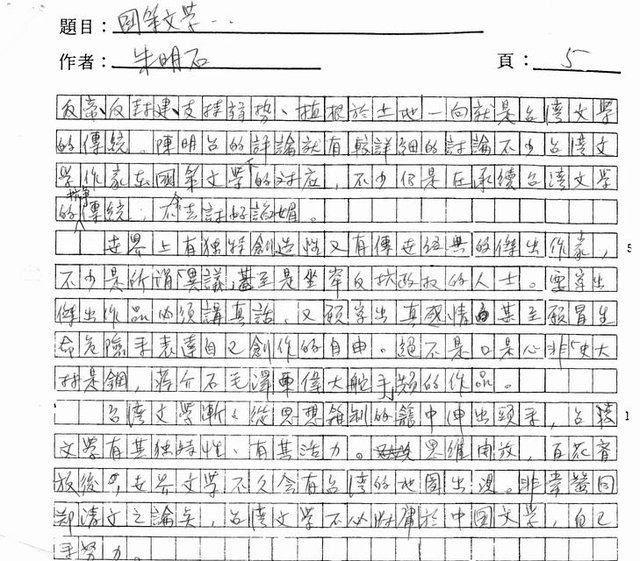 題目：國策文學…
作者：朱明石 頁：5
反帝、反封建、支持弱勢、植根於土地一向就是台湾文學
的傳統。陳明台的評論就有較詳細的討論不少台湾文
學作家在國策文學下的对应，不少仍是在承續台湾文學
的抗爭傳統，不会去討好諂媚。
世界上有独特創造性又有傳世經典的傑出作家，
不少是所謂「異議」甚至是坐牢反抗政权的人士。要寫出
傑出作品必須講真話，又願寫出真感情甚至願冒生
命危險手表達自己創作的自由。絕不是口是心非「史大
林是鋼，蔣介石毛澤東偉大舵手」類的作品。
台湾文學漸漸從思想箝制的舊中伸出頭來，台湾
文學有其独特性、有其活力。思維開放，百花齊
放後，世界文學不久会有台湾的地圖出現。非常贊同
鄭清文之論矣，台湾文學不必附庸於中國文學，自己
手努力。